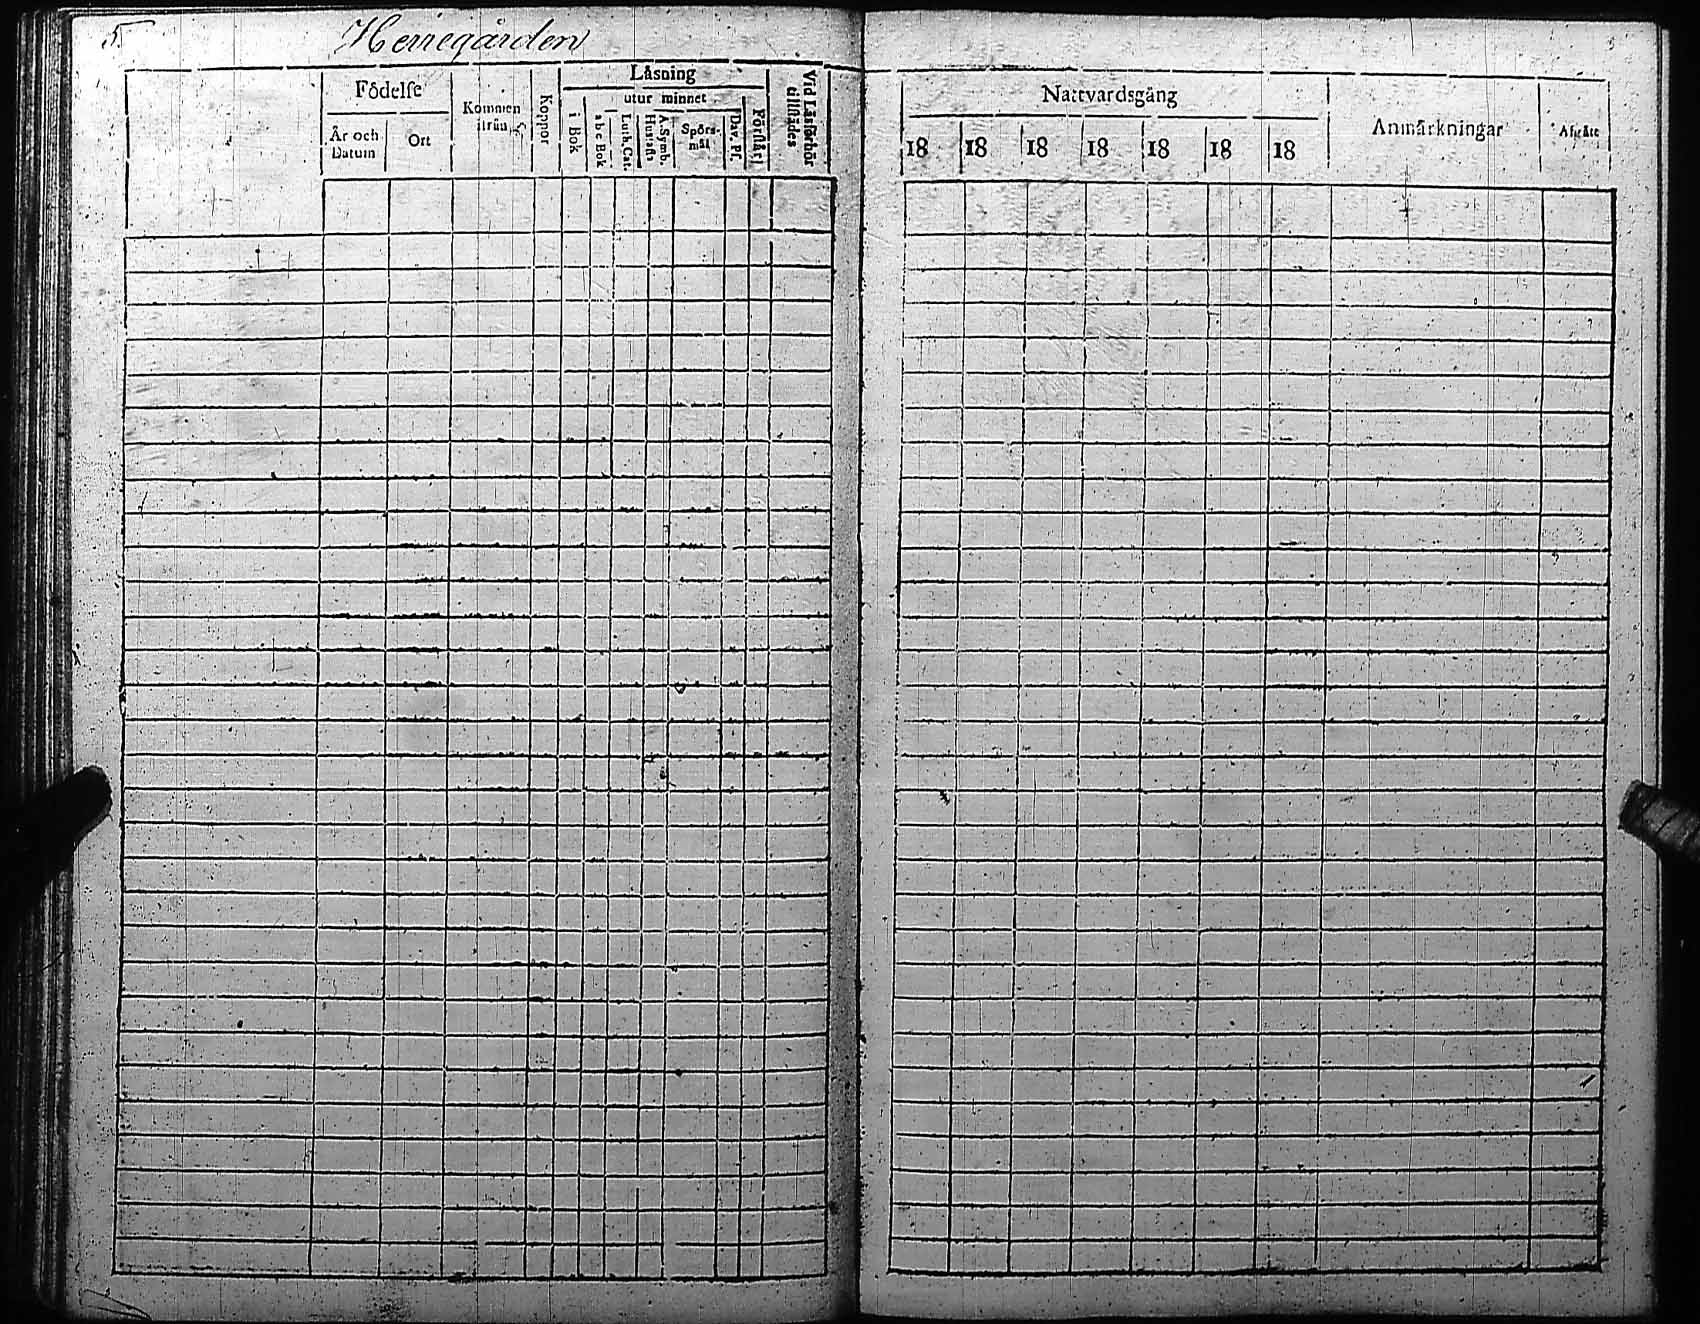 5.
Herregården
Födelse
År och
Datum
Ort
Kommen
ifrån
Koppor
Läsning
i Bok
utur minnet
abc Bok
Luth. Cat.
Hustafl.
A. Symb.
Spörs-
mål
Dav. Ps.
Förstår
Vid Läsförhör
tillstädes
Nattvardsgång
18 18 18 18 18 18 18
Anmärkningar